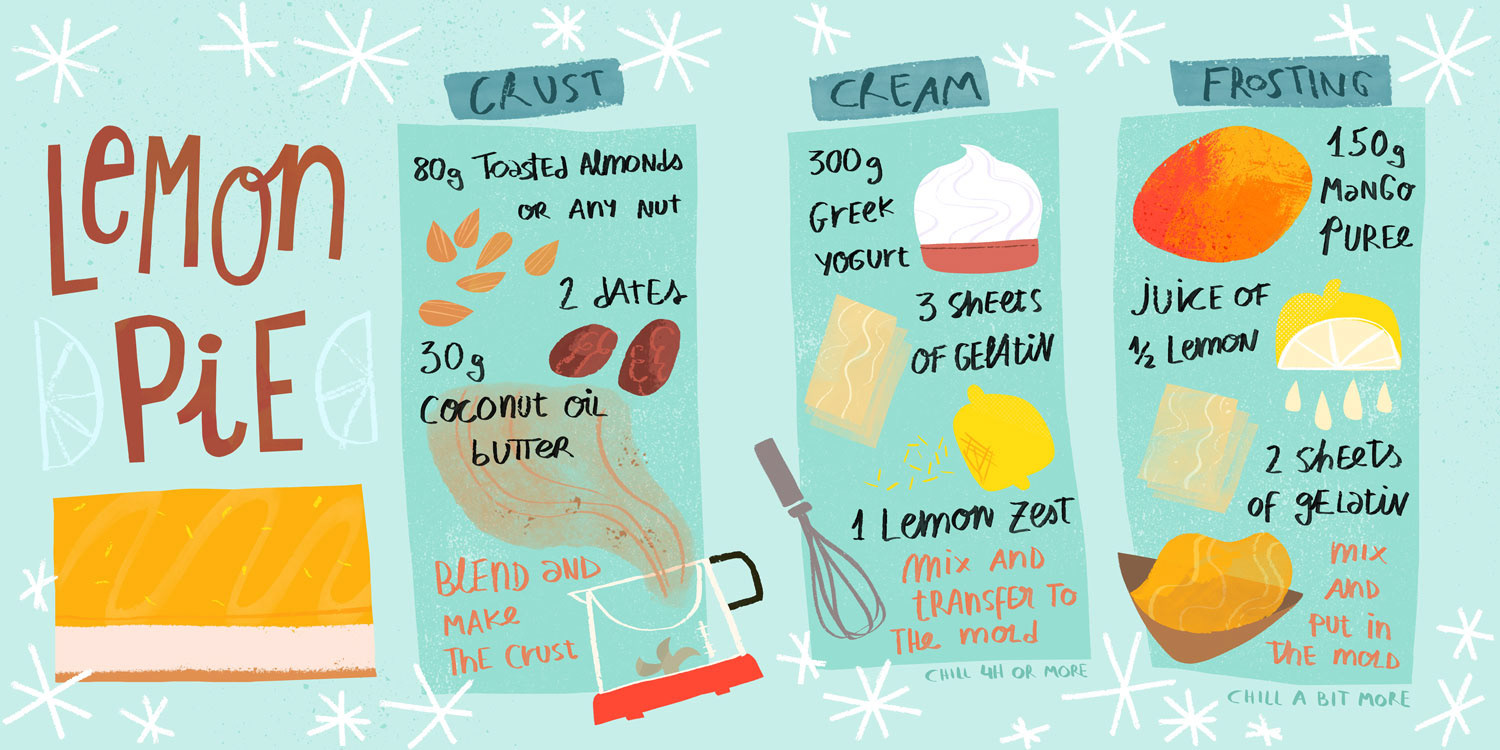 Lemon
PiE
CRUST
80g Toasted Almonds
OR ANY NUT
2 dATEs
30g
COCONUT OiL
bUTTER
BLEND AND
MAKE
THE CRUST
CREAM
300g
GREEK
YOGURT
3 SHEETS
OF GELATIN
1 LEMON ZEST
MIX AND
TRANSFER TO
THE MOLD
CHILL 4H OR MORE
FROSTING
150g
MANGO
PUREE
JUICE OF
1/2 LEMON
2 SHEETS
OF GELATIN
MIX
AND
PUT IN
THE MOLD
CHILL A BIT MORE